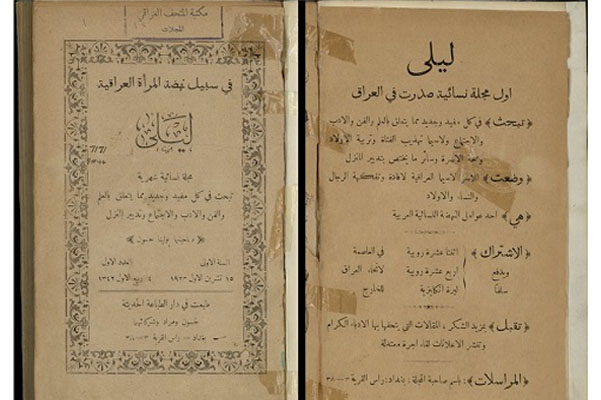 ليلى
اول مجلة نسائية صدرت في العراق
﴿ تبحث ﴾ في كل مفيد وجديد مما يتعلق بالعلم والفن والادب
والاجتماع ولاسيما تهذيب الفتاة وتربية الاولاد
وصحة الاسرة وسائر ما يختص بتدبير المنزل
﴿ وضعت ﴾ للاسر لاسيما العراقية لافادة وتفكهة الرجال
والنساء والاولاد
﴿ هي ﴾ احد عوامل النهضة النسائية العربية
﴿ الاشتراك ﴾ اثنتا عشرة روبية في العاصمة
ويدفع اربع عشرة روبية لانحاء العراق
سلفاً ليرة انكليزية للخارج
﴿ تقبل ﴾ بمزيد الشكر المقالات التي يتحفها بها الادباء الكرام
وتنشر الاعلانات لقاء اجرة معتدلة
﴿ المراسلات ﴾ : باسم صاحبة المجلة : بغداد : راس القرية
مكتبة المتحف العراقي
المجلات
في سبيل نهضة المرأة العراقية
ليلى
مجلة نسائية شهرية
تبحث في كل مفيد وجديد مما يتعلق بالعلم
والفن والادب والاجتماع وتدبير المنزل
﴿ صاحبتها بولينا حسون ﴾
السنة الاولى العدد الاول
١٥ تشرين الاول ١٩٢٣ ٤ ربيع الاول ١٣٤٢
طبعت في دار الطباعة الحديثة
لحسون ومراد وشركائهما
بغداد — راس القرية